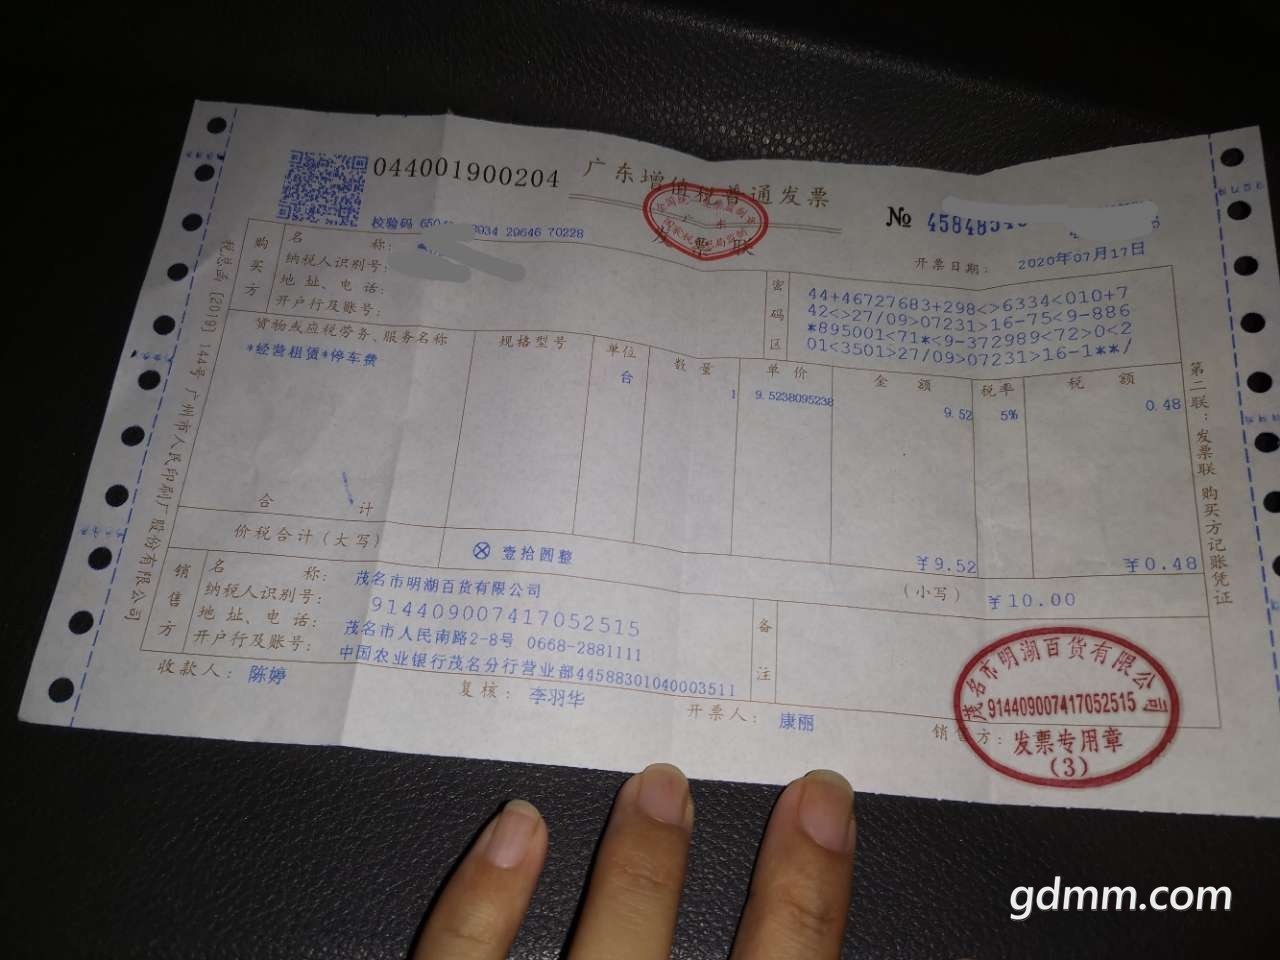 044001900204
广东增值税普通发票
发票联
全国统一发票监制章
广东
国家税务总局监制
№ 4584854
校验码 650 3934 29646 70228
开票日期: 2020年07月17日
购买方
名称:
纳税人识别号:
地址、电话:
开户行及账号:
密码区
44+46727683+298<>6334<010+7
42<>27/09>07231>16-75<9-886
*895001<71*<9-372989<72>0<2
01<3501>27/09>07231>16-1**/
货物或应税劳务、服务名称 规格型号 单位 数量 单价 金额 税率 税额
*经营租赁*停车费 台 1 9.5238095238 9.52 5% 0.48
合计 ¥9.52 ¥0.48
价税合计(大写) ⊗壹拾圆整 (小写) ¥10.00
销售方
名称: 茂名市明湖百货有限公司
纳税人识别号: 914409007417052515
地址、电话: 茂名市人民南路2-8号 0668-2881111
开户行及账号: 中国农业银行茂名分行营业部44588301040003511
备注
收款人: 陈婷 复核: 李羽华 开票人: 康丽 销售方:
茂名市明湖百货有限公司
914409007417052515
发票专用章
(3)
税总函〔2019〕144号广州市人民印刷厂股份有限公司
第二联:发票联 购买方记账凭证
gdmm.com